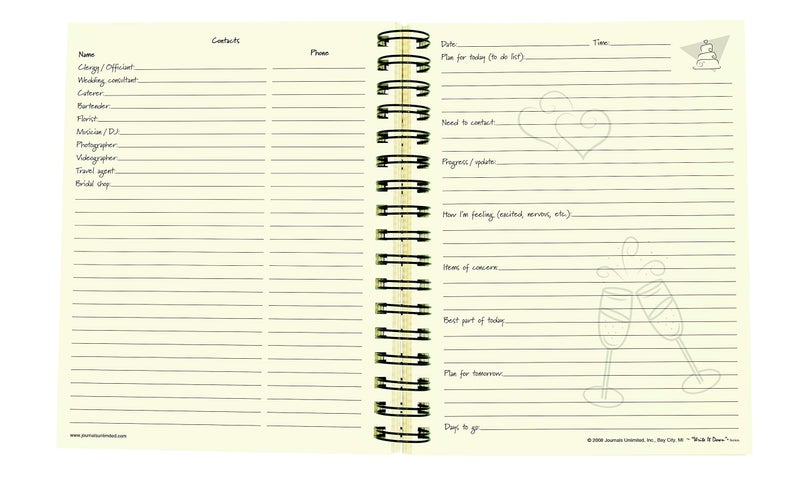 Contacts
Name Phone
Clergy / Officiant:
Wedding consultant:
Caterer:
Bartender:
Florist:
Musician / DJ:
Photographer:
Videographer:
Travel agent:
Bridal shop:
www.journalsunlimited.com
Date: Time:
Plan for today (to do list):
Need to contact:
Progress / update:
How I'm feeling (excited, nervous, etc.):
Items of concern:
Best part of today:
Plan for tomorrow:
Days to go:
© 2008 Journals Unlimited, Inc., Bay City, MI ~ "Write It Down" ~ Series